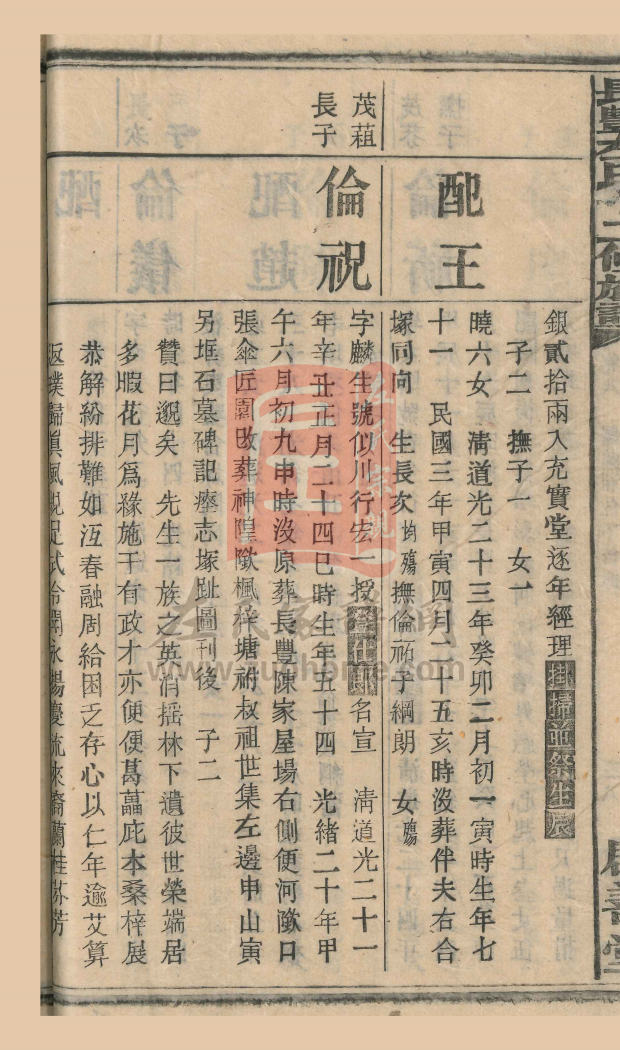 銀貳拾兩入充實堂逐年經理掛掃並祭生辰
子二　撫子一　女一
配王
曉六女　清道光二十三年癸卯二月初一寅時生年七
十一　民國三年甲寅四月二十五亥時沒葬伴夫右合
塚同向　生長次均殤撫倫祈子綱朗　女殤
茂葅
長子
倫祝
字麟生號似川行宏一授登仕郎名宣　清道光二十一
年辛丑正月二十四巳時生年五十四　光緒二十年甲
午六月初九申時沒原葬長豐陳家屋場右側便河墩口
張傘匠園改葬神隍墩楓梓塘祔叔祖世集左邊申山寅
另堆石墓碑記瘞志塚趾圖刊後　子二
贊曰邈矣　先生一族之英逍搖林下遺彼世榮端居
多暇花月為緣施于有政才亦便便葛藟庇本桑梓展
恭解紛排難如沍春融周給困乏存心以仁年逾艾算
返撲歸真風規足式令聞永揚慶流來裔蘭桂苾芳
www.zuphome.com